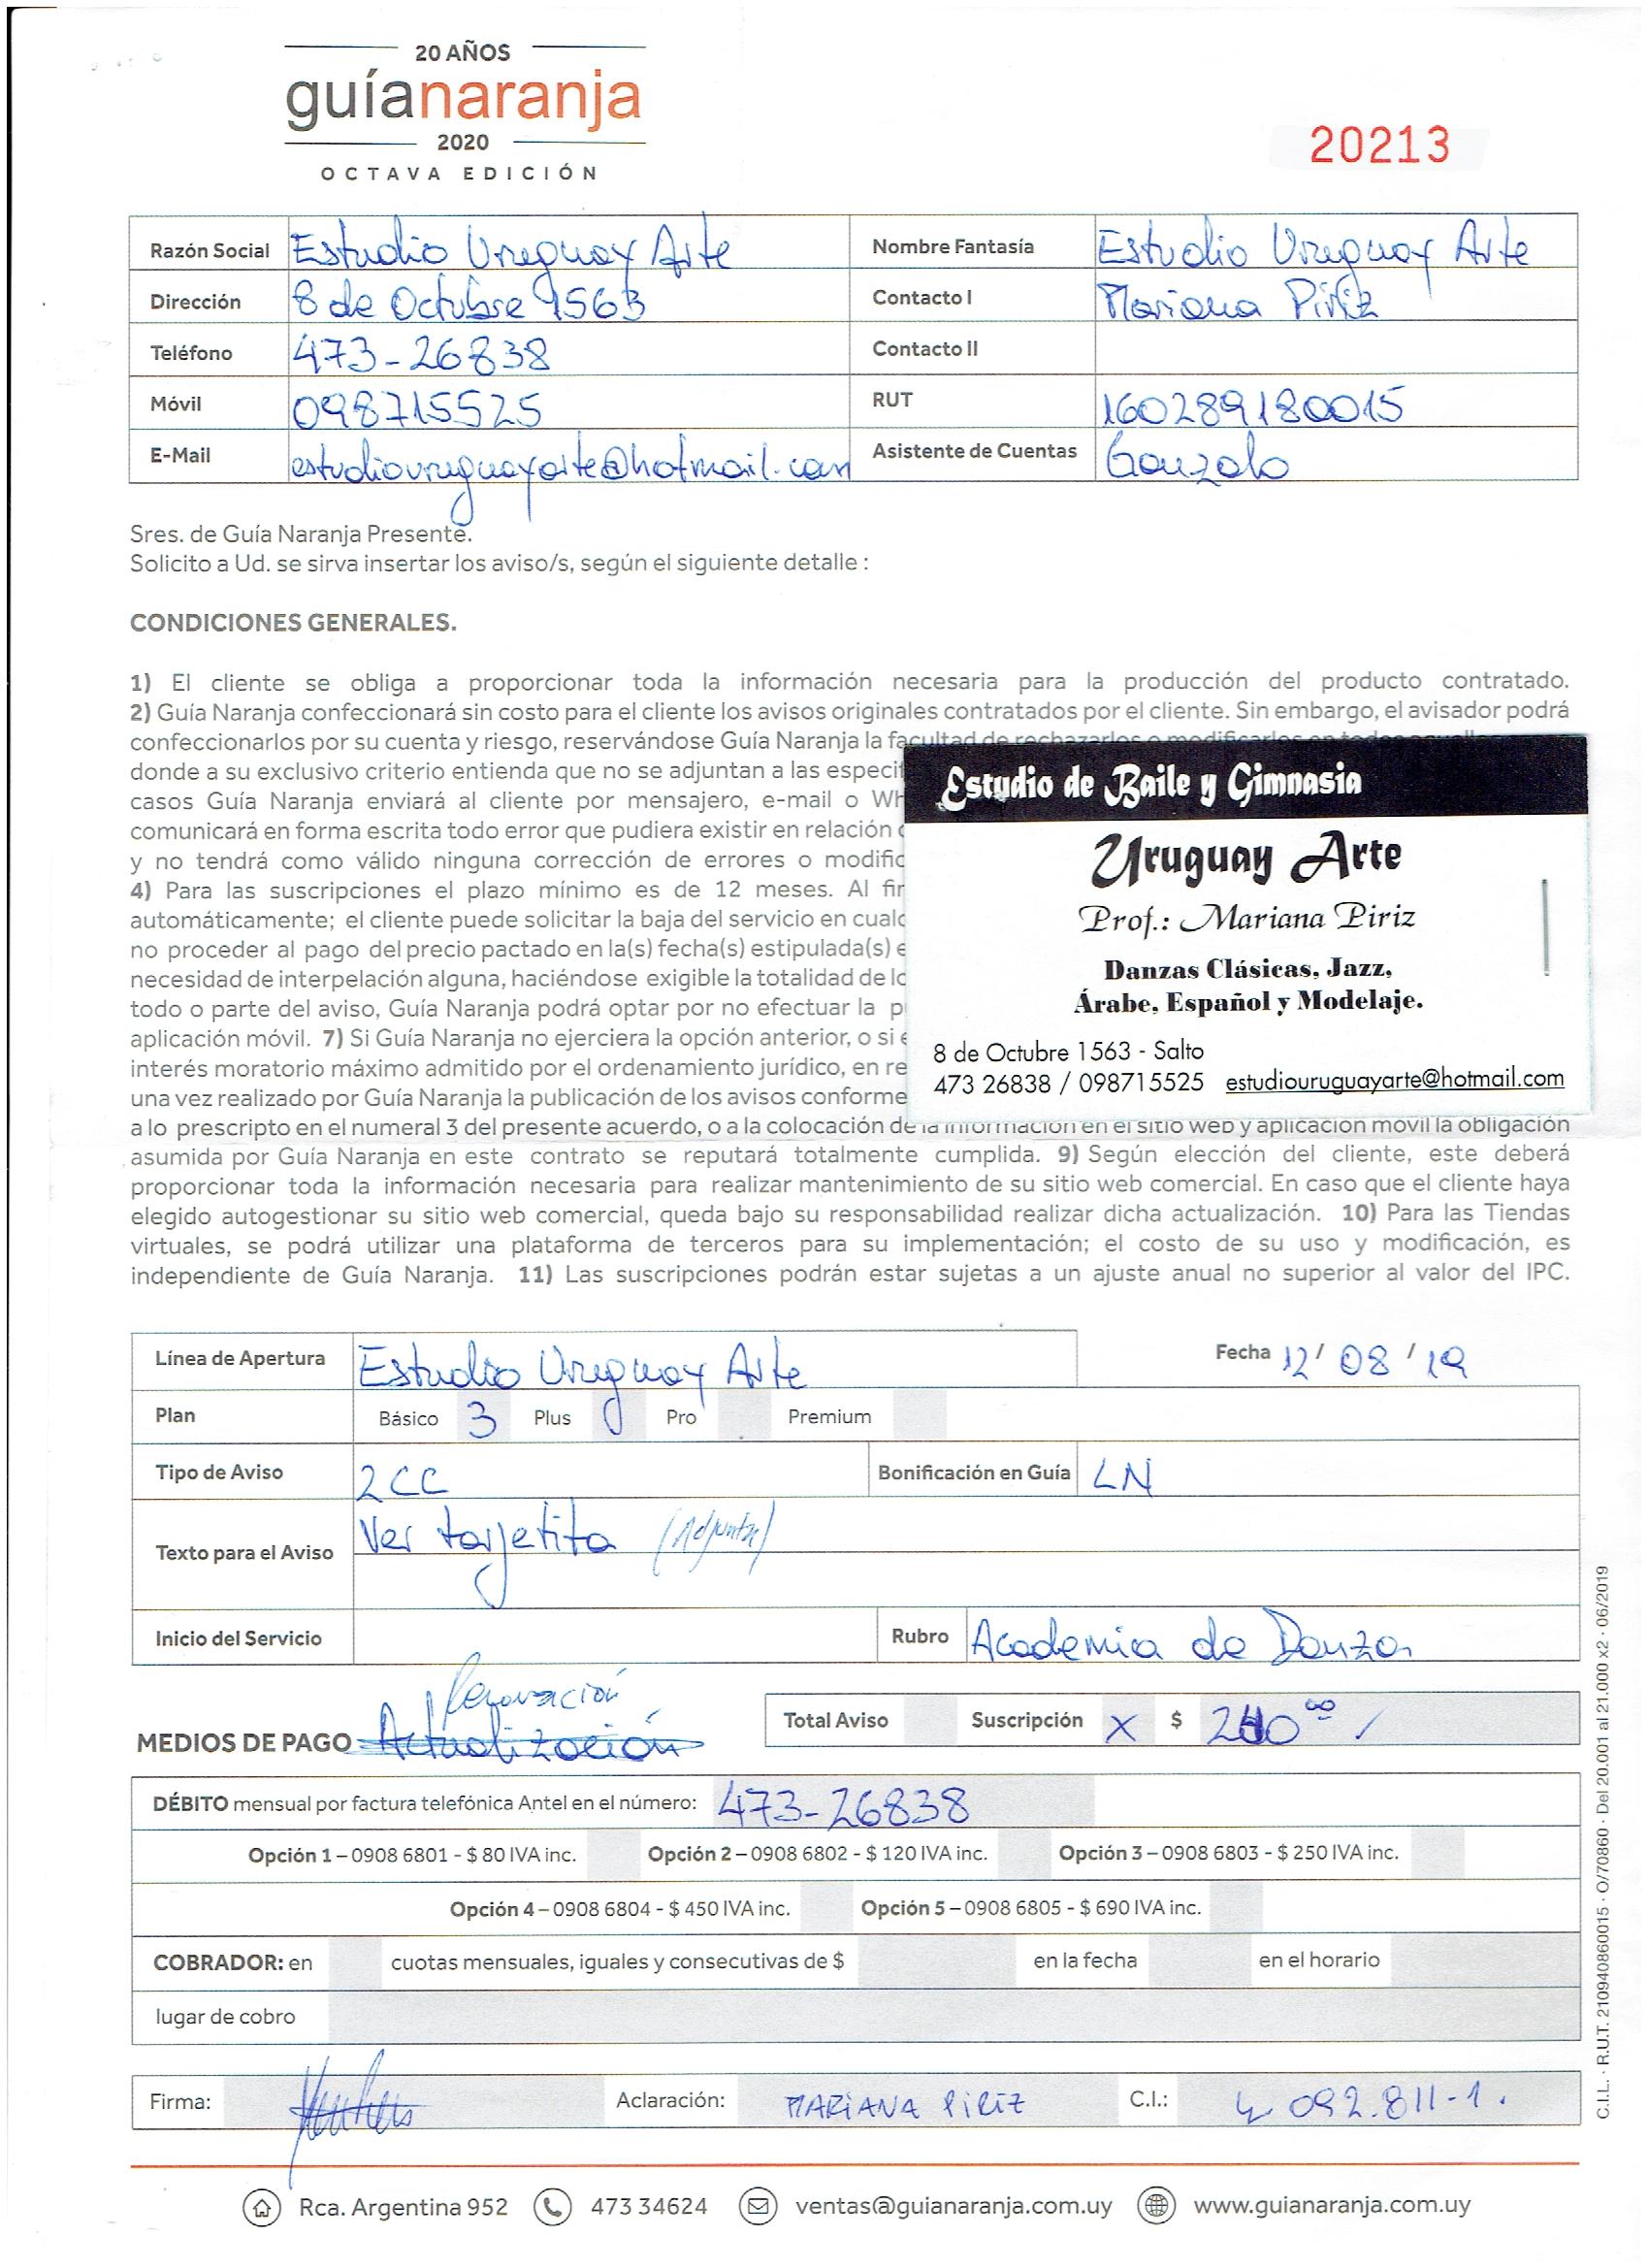 20 AÑOS
guíanaranja
2020
OCTAVA EDICIÓN
20213
Razón Social Estudio Uruguay Arte Nombre Fantasía Estudio Uruguay Arte
Dirección 8 de Octubre 1563 Contacto I Mariana Piriz
Teléfono 473-26838 Contacto II
Móvil 098715525 RUT 160289180015
E-Mail estudiouruguayarte@hotmail.com Asistente de Cuentas Gonzalo
Sres. de Guía Naranja Presente.
Solicito a Ud. se sirva insertar los aviso/s, según el siguiente detalle :
CONDICIONES GENERALES.
1) El cliente se obliga a proporcionar toda la información necesaria para la producción del producto contratado.
2) Guía Naranja confeccionará sin costo para el cliente los avisos originales contratados por el cliente. Sin embargo, el avisador podrá
confeccionarlos por su cuenta y riesgo, reservándose Guía Naranja la facultad de rechazarlos o modificarlos en todos
donde a su exclusivo criterio entienda que no se adjuntan a las especif
casos Guía Naranja enviará al cliente por mensajero, e-mail o Wh
comunicará en forma escrita todo error que pudiera existir en relación
y no tendrá como válido ninguna corrección de errores o modific
4) Para las suscripciones el plazo mínimo es de 12 meses. Al fin
automáticamente; el cliente puede solicitar la baja del servicio en cualq
no proceder al pago del precio pactado en la(s) fecha(s) estipulada(s) e
necesidad de interpelación alguna, haciéndose exigible la totalidad de lo
todo o parte del aviso, Guía Naranja podrá optar por no efectuar la p
aplicación móvil. 7) Si Guía Naranja no ejerciera la opción anterior, o si e
interés moratorio máximo admitido por el ordenamiento jurídico, en re
una vez realizado por Guía Naranja la publicación de los avisos conforme
a lo prescripto en el numeral 3 del presente acuerdo, o a la colocación de la información en el sitio web y aplicación móvil la obligación
asumida por Guía Naranja en este contrato se reputará totalmente cumplida. 9) Según elección del cliente, este deberá
proporcionar toda la información necesaria para realizar mantenimiento de su sitio web comercial. En caso que el cliente haya
elegido autogestionar su sitio web comercial, queda bajo su responsabilidad realizar dicha actualización. 10) Para las Tiendas
virtuales, se podrá utilizar una plataforma de terceros para su implementación; el costo de su uso y modificación, es
independiente de Guía Naranja. 11) Las suscripciones podrán estar sujetas a un ajuste anual no superior al valor del IPC.
Estudio de Baile y Gimnasia
Uruguay Arte
Prof.: Mariana Piriz
Danzas Clásicas, Jazz,
Árabe, Español y Modelaje.
8 de Octubre 1563 - Salto
473 26838 / 098715525 estudiouruguayarte@hotmail.com
Línea de Apertura Estudio Uruguay Arte Fecha 12/ 08 / 19
Plan Básico 3 Plus Pro Premium
Tipo de Aviso 2CC Bonificación en Guía LN
Texto para el Aviso Ver tarjetita (Adjunta)
Inicio del Servicio Rubro Academia de Danza
Renovación
MEDIOS DE PAGO Actualización Total Aviso Suscripción X $ 240 00 /
DÉBITO mensual por factura telefónica Antel en el número: 473-26838
Opción 1 – 0908 6801 - $ 80 IVA inc. Opción 2 – 0908 6802 - $ 120 IVA inc. Opción 3 – 0908 6803 - $ 250 IVA inc.
Opción 4 – 0908 6804 - $ 450 IVA inc. Opción 5 – 0908 6805 - $ 690 IVA inc.
COBRADOR: en cuotas mensuales, iguales y consecutivas de $ en la fecha en el horario
lugar de cobro
Firma: Aclaración: MARIANA PIRIZ C.I.: 4 092.811-1.
Rca. Argentina 952 473 34624 ventas@guianaranja.com.uy www.guianaranja.com.uy
C.I.L. · R.U.T. 210940860015 · O/70860 · Del 20.001 al 21.000 x2 · 06/2019